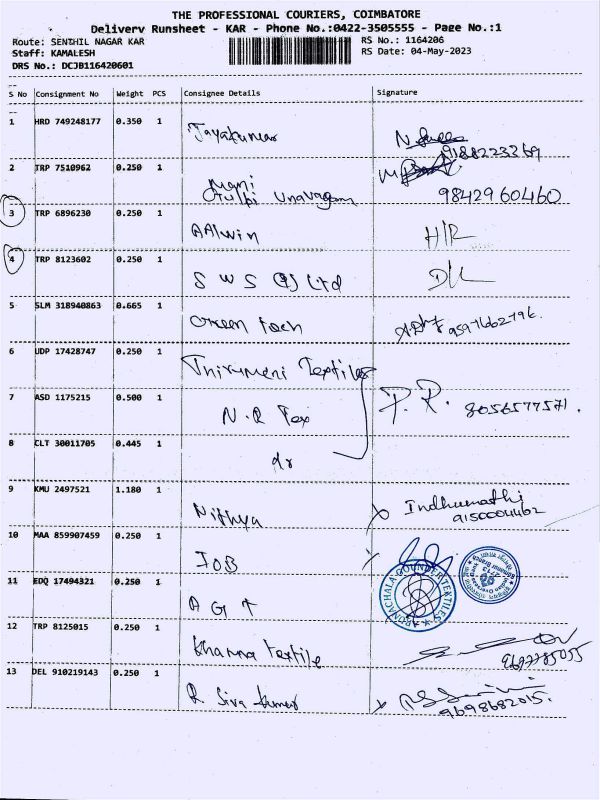 THE PROFESSIONAL COURIERS, COIMBATORE
Delivery Runsheet - KAR - Phone No.:0422-3505555 - Page No.:1
Route: SENTHIL NAGAR KAR
RS No.: 1164206
Staff: KAMALESH
RS Date: 04-May-2023
DRS No.: DCJB116420601
S No Consignment No Weight PCS Consignee Details Signature
1 HRD 749248177 0.350 1 Jayakumar
9188223369
2 TRP 7510962 0.250 1 Mani
Unavagam 98429 60460
3 TRP 6896230 0.250 1 AAlwin H/R
4 TRP 8123602 0.250 1 S W S Ltd D/L
5 SLM 318940863 0.665 1 Green Tech 9597662796.
6 UDP 17428747 0.250 1 Thirumeni Textiles
7 ASD 1175215 0.500 1 N.R Tex P. R. 8056577571.
8 CLT 30011705 0.445 1 dr
9 KMU 2497521 1.180 1 Nithya Indhumathi
9150004462
10 MAA 859907459 0.250 1 IOB
11 EDQ 17494321 0.250 1 A G T
ARUNACHALA GOUNDER TEXTILES
12 TRP 8125015 0.250 1 Khanna Textile
13 DEL 910219143 0.250 1 R. Siva kumar
9698682015.